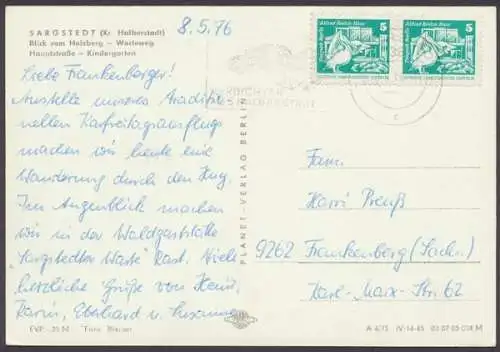 SARGSTEDT (Kr. Halberstadt)
Blick vom Holzberg – Warteweg
Hauptstraße – Kindergarten
8.5.76
Liebe Frankenberger!
Anstelle unseres tradition
nellen Karfreitagsausflugs
machen wir heute eine
Wanderung durch den Huy.
Im Augenblick machen
wir in der Waldgaststätte
"Sargstedter Warte" Rast. Viele
herzliche Grüße von
Karin, Eberhard u. Susanne
EVP -,20 M
PLANET-VERLAG BERLIN
Alfred Brehm Haus
5
Alfred Brehm Haus
5
Fam.
Harri Preuß
9262 Frankenberg (Sachs.)
Karl-Marx-Str. 62
A 4/75 IV-14-45 03 07 05 034 M